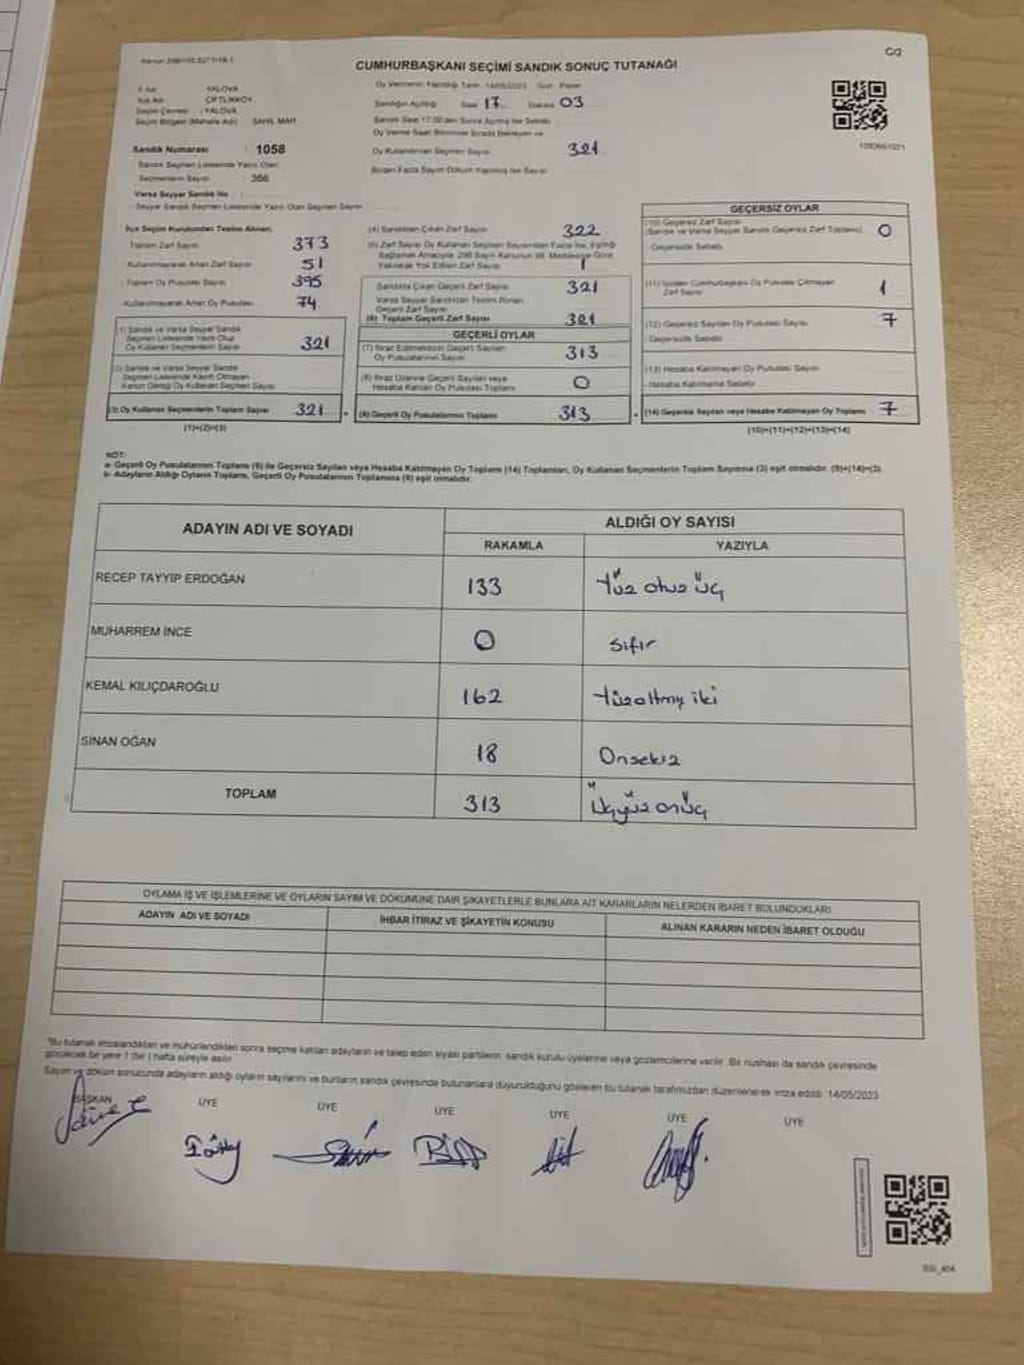 C/2
CUMHURBAŞKANI SEÇİMİ SANDIK SONUÇ TUTANAĞI
İl Adı YALOVA
İlçe Adı ÇİFTLİKKÖY
Seçim Çevresi : YALOVA
Seçim Bölgesi (Mahalle Adı) SAHİL MAH
Sandık Numarası : 1058
Sandık Seçmen Listesinde Yazılı Olan
Seçmenlerin Sayısı : 366
Varsa Seyyar Sandık No :
Seyyar Sandık Seçmen Listesinde Yazılı Olan Seçmen Sayısı
Oy Vermenin Yapıldığı Tarih 14/05/2023 Gün Pazar
Sandığın Açıldığı Saat 17 Dakika 03
Sandık Saat 17.00'den Sonra Açılmış İse Sebebi
Oy Verme Saati Bitiminde Sırada Bekleyen ve
Oy Kullandırılan Seçmen Sayısı 321
Birden Fazla Sayım Döküm Yapılmış İse Sayısı
İlçe Seçim Kurulundan Teslim Alınan
Toplam Zarf Sayısı 373
Kullanılmayarak Artan Zarf Sayısı 51
Toplam Oy Pusulası Sayısı 395
Kullanılmayarak Artan Oy Pusulası 74
(1) Sandık ve Varsa Seyyar Sandık
Seçmen Listesinde Yazılı Olup
Oy Kullanan Seçmenlerin Sayısı 321
(2) Sandık ve Varsa Seyyar Sandık
Seçmen Listesinde Kayıtlı Olmayan
Kanun Gereği Oy Kullanan Seçmen Sayısı
(3) Oy Kullanan Seçmenlerin Toplam Sayısı 321
(1)+(2)=(3)
(4) Sandıktan Çıkan Zarf Sayısı 322
(5) Zarf Sayısı Oy Kullanan Seçmen Sayısından Fazla İse, Eşitliği
Sağlamak Amacıyla 298 Sayılı Kanunun 98. Maddesine Göre
Yakılarak Yok Edilen Zarf Sayısı 1
Sandıkta Çıkan Geçerli Zarf Sayısı 321
Varsa Seyyar Sandıktan Teslim Alınan
Geçerli Zarf Sayısı
(6) Toplam Geçerli Zarf Sayısı 321
GEÇERLİ OYLAR
(7) İtiraz Edilmeksizin Geçerli Sayılan
Oy Pusulalarının Sayısı 313
(8) İtiraz Üzerine Geçerli Sayılan veya
Hesaba Katılan Oy Pusulası Toplamı 0
(9) Geçerli Oy Pusulalarının Toplamı 313
GEÇERSİZ OYLAR
(10) Geçersiz Zarf Sayısı
(Sandık ve Varsa Seyyar Sandık Geçersiz Zarf Toplamı) 0
Geçersizlik Sebebi
(11) İçinden Cumhurbaşkanı Oy Pusulası Çıkmayan
Zarf Sayısı 1
(12) Geçersiz Sayılan Oy Pusulası Sayısı 7
Geçersizlik Sebebi
(13) Hesaba Katılmayan Oy Pusulası Sayısı
Hesaba Katılmama Sebebi
(14) Geçersiz Sayılan veya Hesaba Katılmayan Oy Toplamı 7
(10)+(11)+(12)+(13)=(14)
NOT:
a- Geçerli Oy Pusulalarının Toplamı (9) ile Geçersiz Sayılan veya Hesaba Katılmayan Oy Toplamı (14) Toplamları, Oy Kullanan Seçmenlerin Toplam Sayısına (3) eşit olmalıdır. (9)+(14)=(3)
b- Adayların Aldığı Oyların Toplamı, Geçerli Oy Pusulalarının Toplamına (9) eşit olmalıdır.
ADAYIN ADI VE SOYADI ALDIĞI OY SAYISI
RAKAMLA YAZIYLA
RECEP TAYYIP ERDOĞAN 133 Yüz otuz üç
MUHARREM İNCE 0 Sıfır
KEMAL KILIÇDAROĞLU 162 Yüzaltmış iki
SİNAN OĞAN 18 Onsekiz
TOPLAM 313 Üçyüz onüç
OYLAMA İŞ VE İŞLEMLERİNE VE OYLARIN SAYIM VE DÖKÜMÜNE DAİR ŞİKAYETLERLE BUNLARA AİT KARARLARIN NELERDEN İBARET BULUNDUKLARI
ADAYIN ADI VE SOYADI İHBAR İTİRAZ VE ŞİKAYETİN KONUSU ALINAN KARARIN NEDEN İBARET OLDUĞU
*Bu tutanak imzalandıktan ve mühürlendikten sonra seçime katılan adayların ve talep eden siyasi partilerin, sandık kurulu üyelerine veya gözlemcilerine verilir. Bir nüshası da sandık çevresinde
görülecek bir yere 1 (bir ) hafta süreyle asılır.
Sayım ve döküm sonucunda adayların aldığı oyların sayılarını ve bunların sandık çevresinde bulunanlara duyurulduğunu gösteren bu tutanak tarafımızdan düzenlenerek imza edildi. 14/05/2023
BAŞKAN ÜYE ÜYE ÜYE ÜYE ÜYE ÜYE